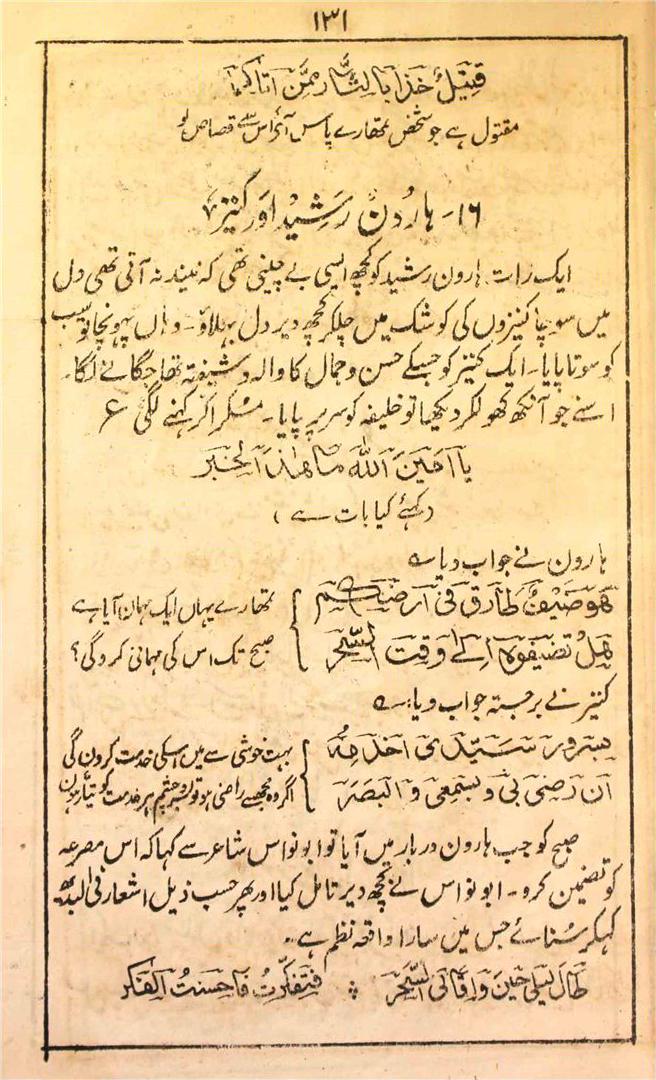 ۱۳۱
قتیل خذا بالثار ممن اتاکما
مقتول ہے جو شخص تمھارے پاس آئے اس سے قصاص لو
۱۶- ہارون رشید اور کنیز
ایک رات ہارون رشید کو کچھ ایسی بے چینی تھی کہ نیند نہ آتی تھی دل
میں سوچا کنیزوں کی کوشک میں چلکر کچھ دیر دل بہلاؤ- وہاں پہونچا تو سب
کو سوتا پایا- ایک کنیز کو جسکے حسن و جمال کا والہ و شیفتہ تھا جگانے لگا-
اسنے جو آنکھ کھولکر دیکھا تو خلیفہ کو سر پر پایا- مسکرا کر کہنے لگی ع
یا امین اللہ ما ھذا الخبر
(کہئے کیا بات ہے)
ہارون نے جواب دیا ے
ھو ضیف طارق فی ارضکم } تمھارے یہاں ایک مہمان آیا ہے
ھل تضیفوہ الی وقت السحر } صبح تک اس کی مہمانی کروگی؟
کنیز نے برجستہ جواب دیا ے
بسرور سیدی اخدمہ } بہت خوشی سے میں اسکی خدمت کروں گی
ان رضی بی و بسمعی والبصر } اگر وہ مجھسے راضی ہو تو بسر و چشم ہر خدمت کو تیار ہوں
صبح کو جب ہارون دربار میں آیا تو ابو نواس شاعر سے کہا کہ اس مصرعہ
کو تضمین کرو- ابو نواس نے کچھ دیر تامل کیا اور پھر حسب ذیل اشعار فی البدیہہ
کہکر سنائے جس میں سارا واقعہ نظم ہے-
طال لیلی حین وافانی السحر ؞ فتفکرت فاحسنت الفکر